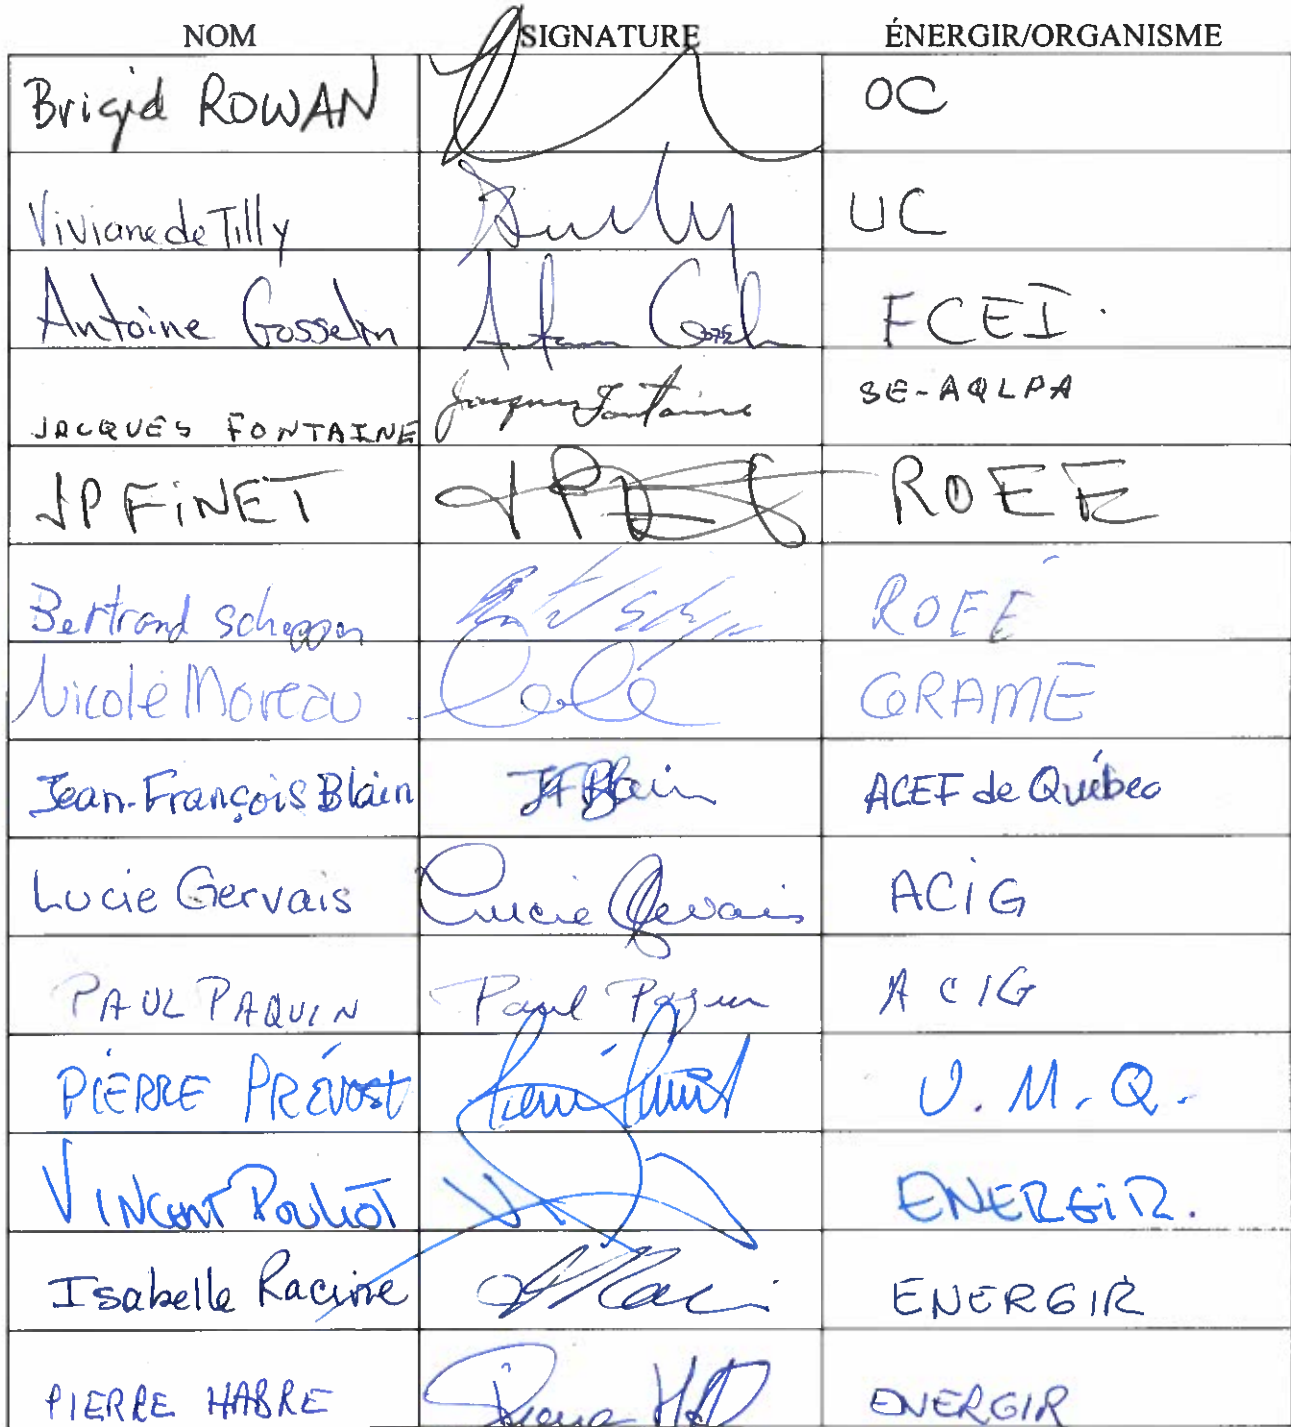 NOM SIGNATURE ÉNERGIR/ORGANISME
Brigid ROWAN OC
Viviane de Tilly UC
Antoine Gosselin FCEI.
JACQUES FONTAINE Jacques Fontaine SE-AQLPA
JP FiNET ROEE
Bertrand ROEÉ
Nicole Moreau GRAME
Jean-François Blain JF Blain ACEF de Québec
Lucie Gervais Lucie Gervais ACiG
PAUL PAQUIN Paul Paquin ACIG
PIERRE PRÉVOST U.M.Q.
VINCENT POULIOT ENERGiR.
Isabelle Racine ENERGIR
PIERRE HABRE ENERGIR